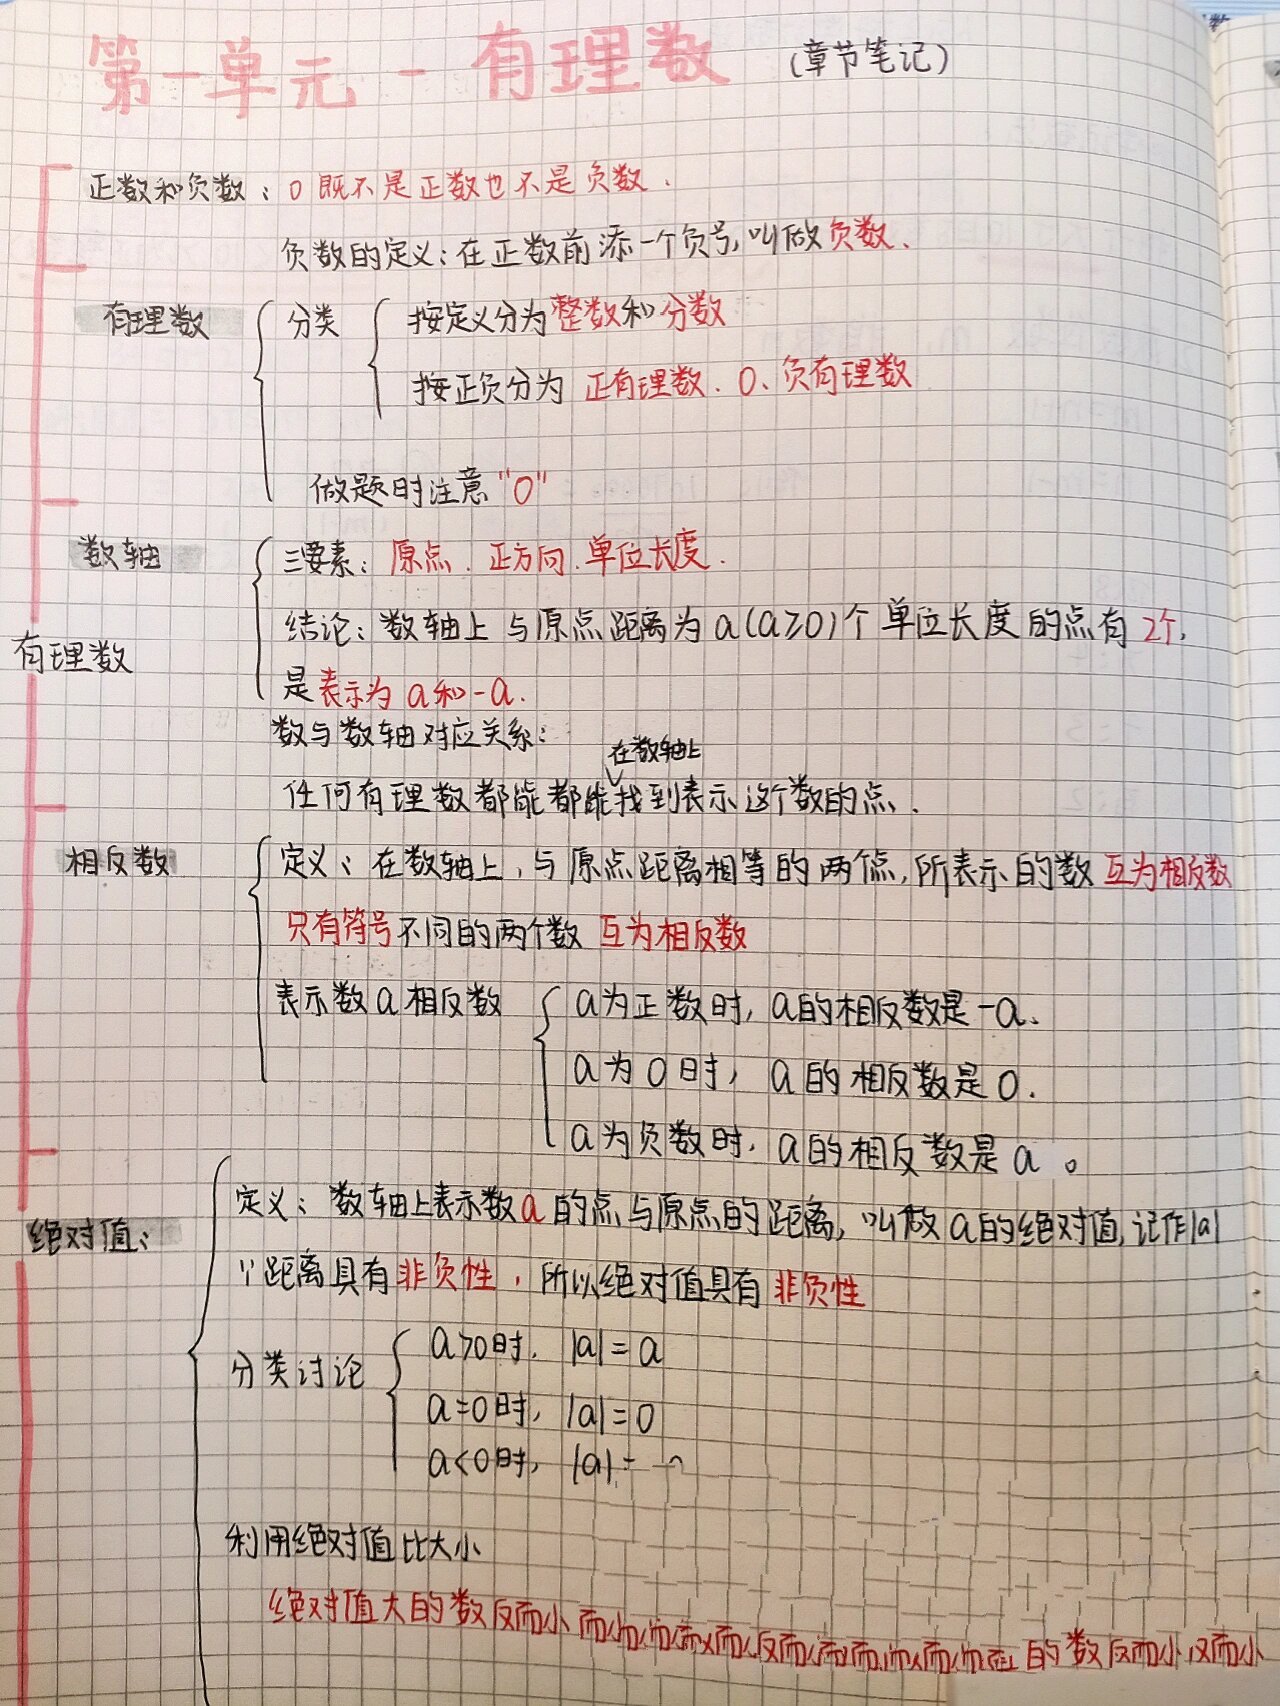 第一单元 - 有理数 (章节笔记)
正数和负数：0既不是正数也不是负数.
负数的定义：在正数前添一个负号,叫做负数.
有理数 分类 按定义分为整数和分数
按正负分为 正有理数. 0、负有理数
做题时注意"0"
数轴 三要素：原点、正方向.单位长度.
结论：数轴上与原点距离为a(a≥0)个单位长度的点有2个,
有理数
是表示为a和-a.
数与数轴对应关系：
在数轴上
任何有理数都能都能找到表示这个数的点.
相反数 定义：在数轴上,与原点距离相等的两个点,所表示的数互为相反数
只有符号不同的两个数 互为相反数
表示数a相反数 a为正数时, a的相反数是-a.
a为0时, a的相反数是0.
a为负数时, a的相反数是a。
定义：数轴上表示数a的点与原点的距离,叫做a的绝对值,记作|a|
绝对值：
距离具有非负性,所以绝对值具有非负性
分类讨论 a>0时. |a|=a
a=0时, |a|=0
a<0时, |a|=-
利用绝对值比大小
绝对值大的数反而小 的数反而小